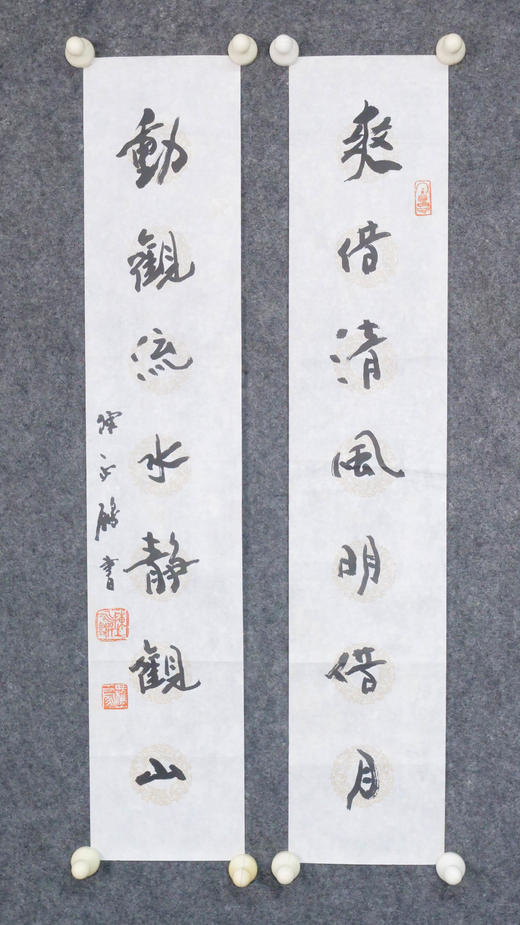 爽借清風明借月
動觀流水靜觀山
書